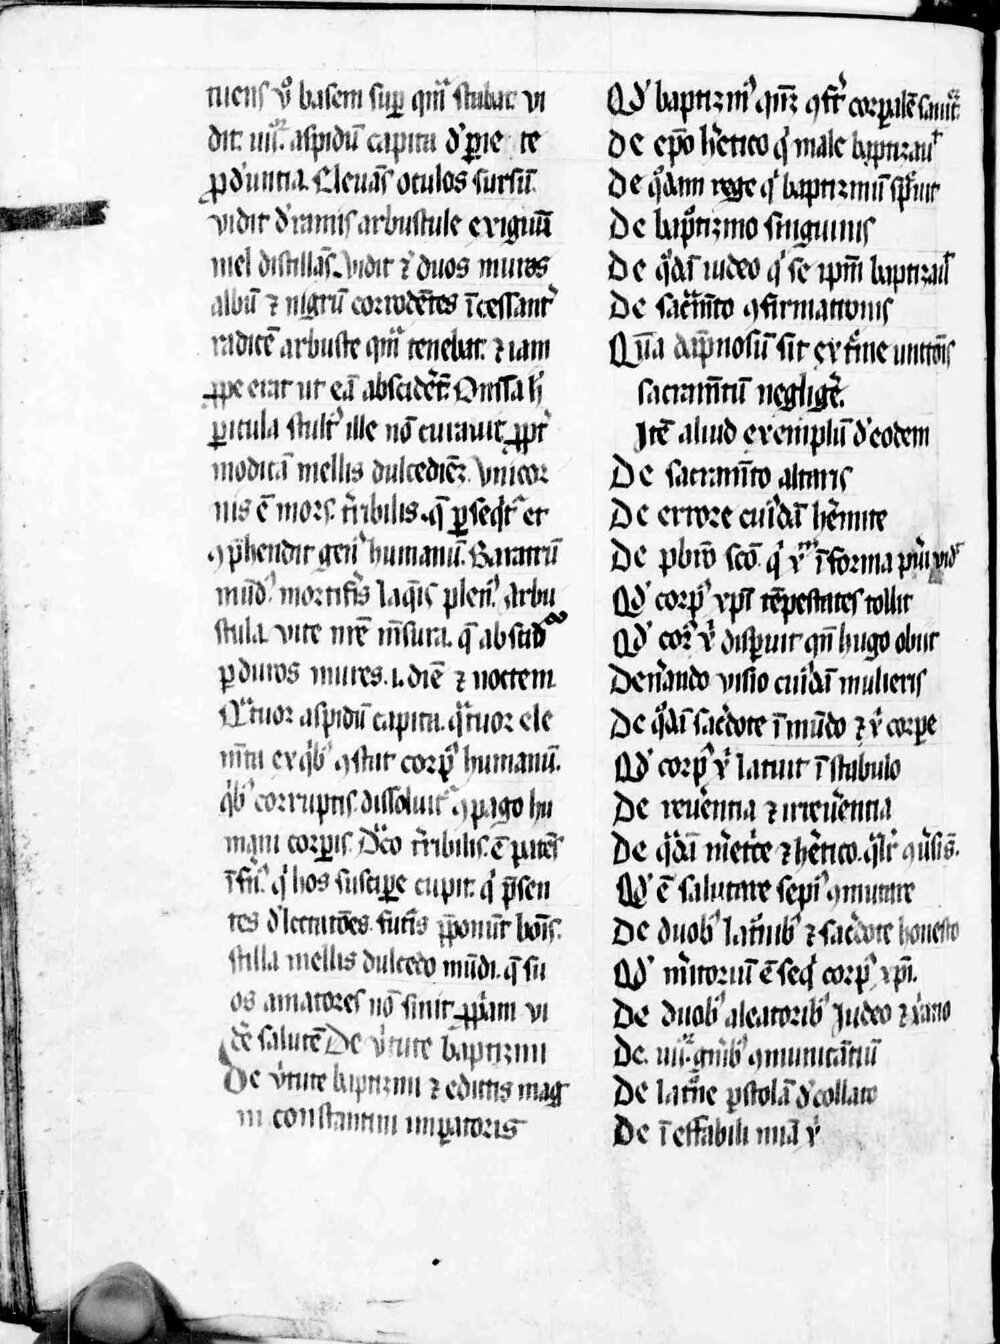 tuens v̊ basem sup̱ qm̄ stabat vi
dit .iiij. aspidū capita d' p̱ie te
ꝓd'untia. Eleuās oculos sursū
vidit d' ramis arbustule exiguū
mel distillās. vidit ⁊ duos mures
albū ⁊ nigrū corrodētes īcessant'
radicē arbuste qm̄ tenebat. ⁊ iam
ꝓpe erat ut eā abscidēt. Omīa h'
p̱icula stult' ille nō curauit ꝓpt'
modicā mellis dulcedinē. Vnicor
nis ē mors t'ribilis. q̄ p̱seqt' et
ꝯp̄hendit gen' humanū. Baratrū
mūd' mortif'is laq̄is plen'. Arbu
stula vite nr̄e mēsura. q̄ abscid'
p̱ duos mures .i. diē ⁊ noctem
Q̄tuor aspidū capita. q̄tuor ele
mēta ex q'b' ꝯstat corp' humanū.
q'b' corruptis dissoluit' ꝯpago hu
mani corp̱is. Draco t'ribilis ē patēs
īfn'. q' hos suscip̱e cupit. q' p̄sen
tes d'lectatōes futis p̄ponūt bonis.
stilla mellis dulcedo mūdi. q̄ su
os amatores nō sinit ꝓp'am vi
d'e salutē De v'tute baptizmi
De v'tute baptizmi ⁊ edictis mag
ni constantini imp̱atoris
Qd' baptizm' qn̄ꝫ ꝯf't corp̱alē sanit̄.
De ep̄o h'etico q' male baptizau'
De q̊dam rege q' baptizmū sp̄uit
De bap̊tizmo sanguinis
De q̊dā iudeo q' se ip̄m baptizau'
De sac̄mēto ꝯfirmationis
Qua dāpnosū sit ext'me unctōis
sacramētū neglig'e.
Itē aliud exemplū d' eodem
De sacramēto altaris
De errore cui'dā h'emite
De pb̄ro sc̄o q' x' ī forma pu'i vid'
Qd' corp' xp̄i tēpestates tollit
Qd' cor' x' disparuit qn̄ hugo obiit
De n'ando visio cui'dā mulieris
De q̊dā sac'dote īmūdo ⁊ x' corpe
Qd' corp' x' latuit ī stabulo
De reu'entia ⁊ irreu'entia
De q̊dā m'et'ce ⁊ h'etico q'lr' ꝯu'sis.
Qd' ē salutare sepi' ꝯmunicare
De duob' lat'nib' ⁊ sac'dote honesto
Qd' m'itoriū ē seq' corp' xp̄i.
De duob' aleatorib' Iudeo ⁊ x'ano
De .iiij. gn'ib' ꝯmunicātiū
De lat'ne d'collato
De ī effabili mīa x'